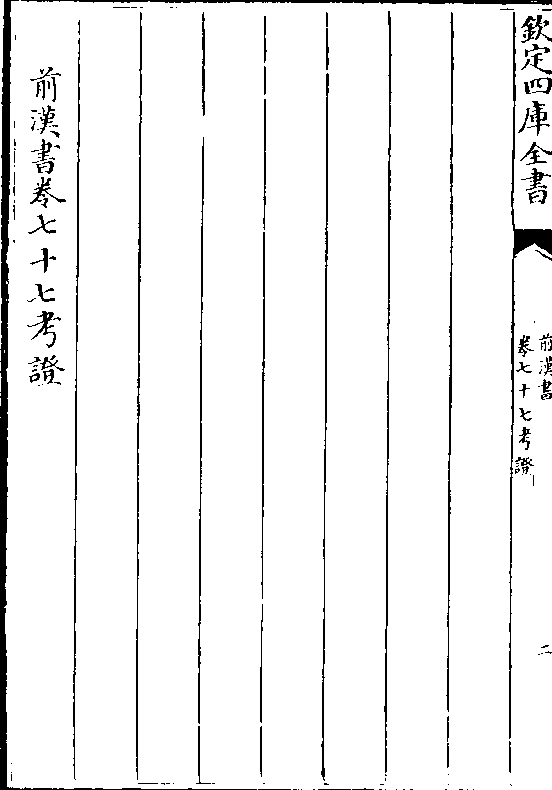 欽定四庫全書
前漢書
卷七十七考證
二
前漢書卷七十七考證